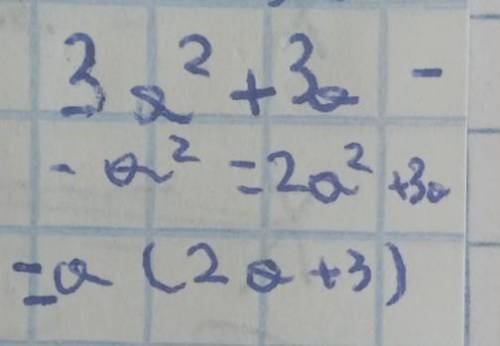 3a² + 3a -
- a² = 2a² + 3a
= a (2a + 3)